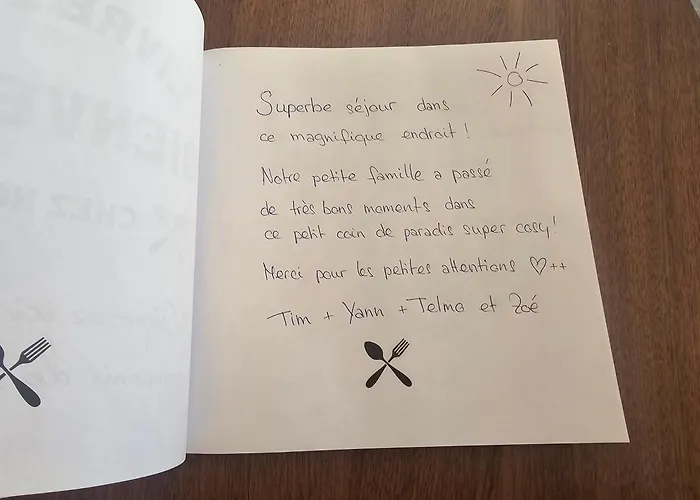 Superbe séjour dans
ce magnifique endroit !
Notre petite famille a passé
de très bons moments dans
ce petit coin de paradis super cosy !
Merci pour les petites attentions ♡++
Tim + Yann + Telmo et Zoé